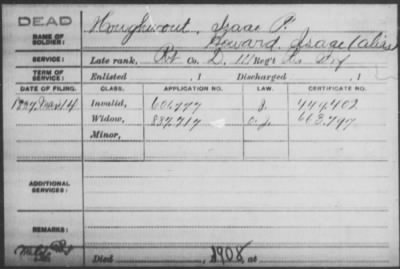 DEAD
NAME OF SOLDIER: Houghwout, Isaac P.
Howard, Isaac (alias)
SERVICE: Late rank, Pvt Co. D, Reg't
TERM OF SERVICE: Enlisted , 1 Discharged , 1
DATE OF FILING. CLASS. APPLICATION NO. LAW. CERTIFICATE NO.
Invalid, 606,777 J. 444,402
Widow, 837,717 O.J. 603,797
Minor,
ADDITIONAL SERVICES:
REMARKS:
Died , 1908, at